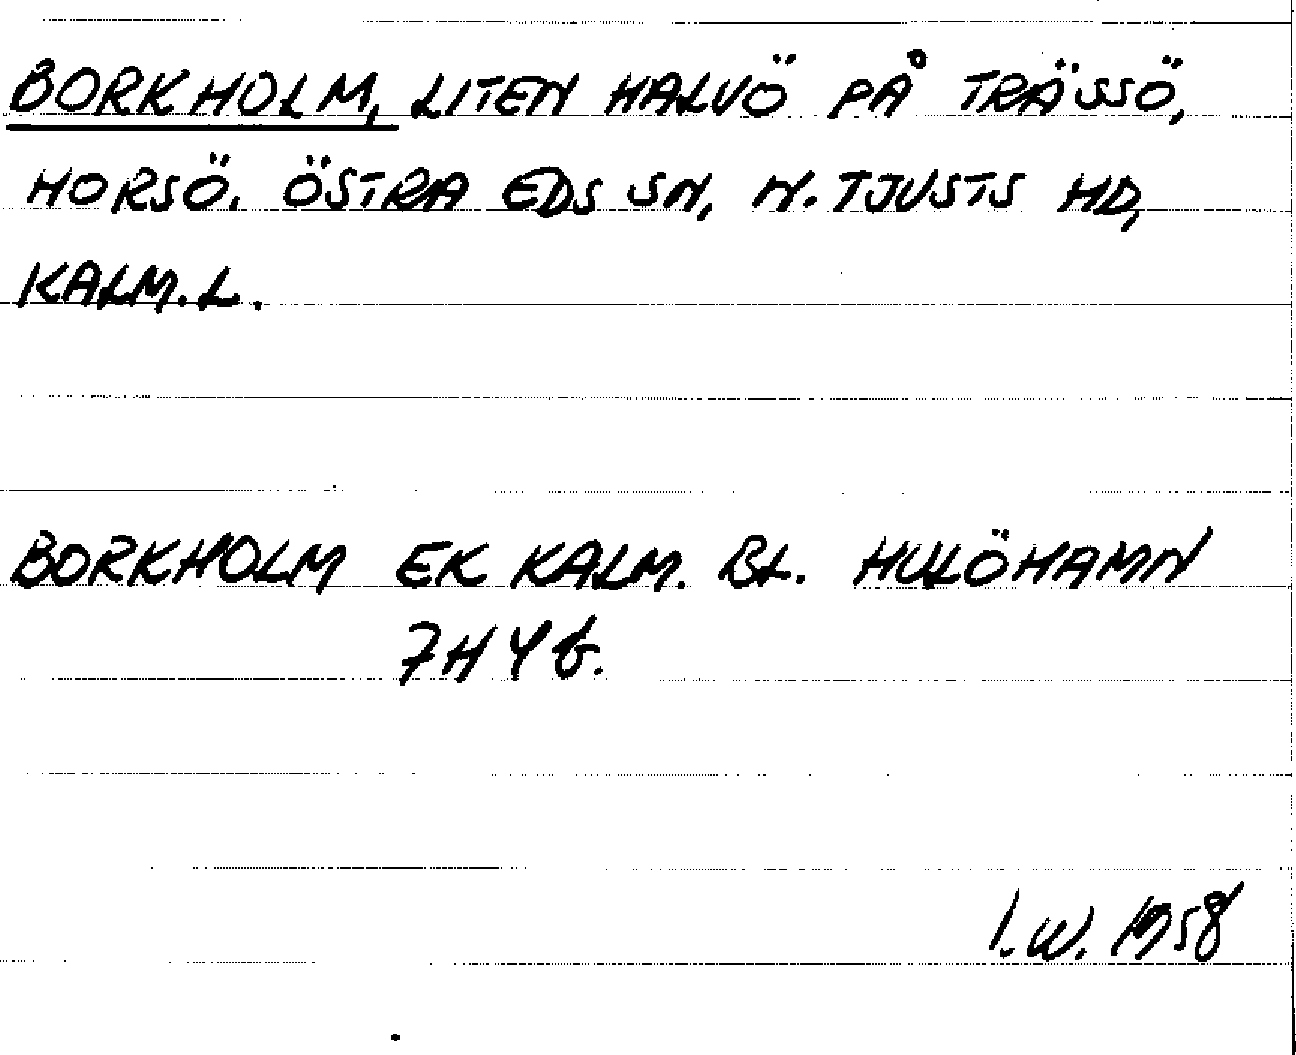 BORKHOLM, LITEN HALVÖ PÅ TRÄSSÖ,
HORSÖ. ÖSTRA EDS SN, N. TJUSTS HD,
KALM. L.
BORKHOLM EK KALM. BL. HULÖHAMN
7H4b.
I. W. 1958